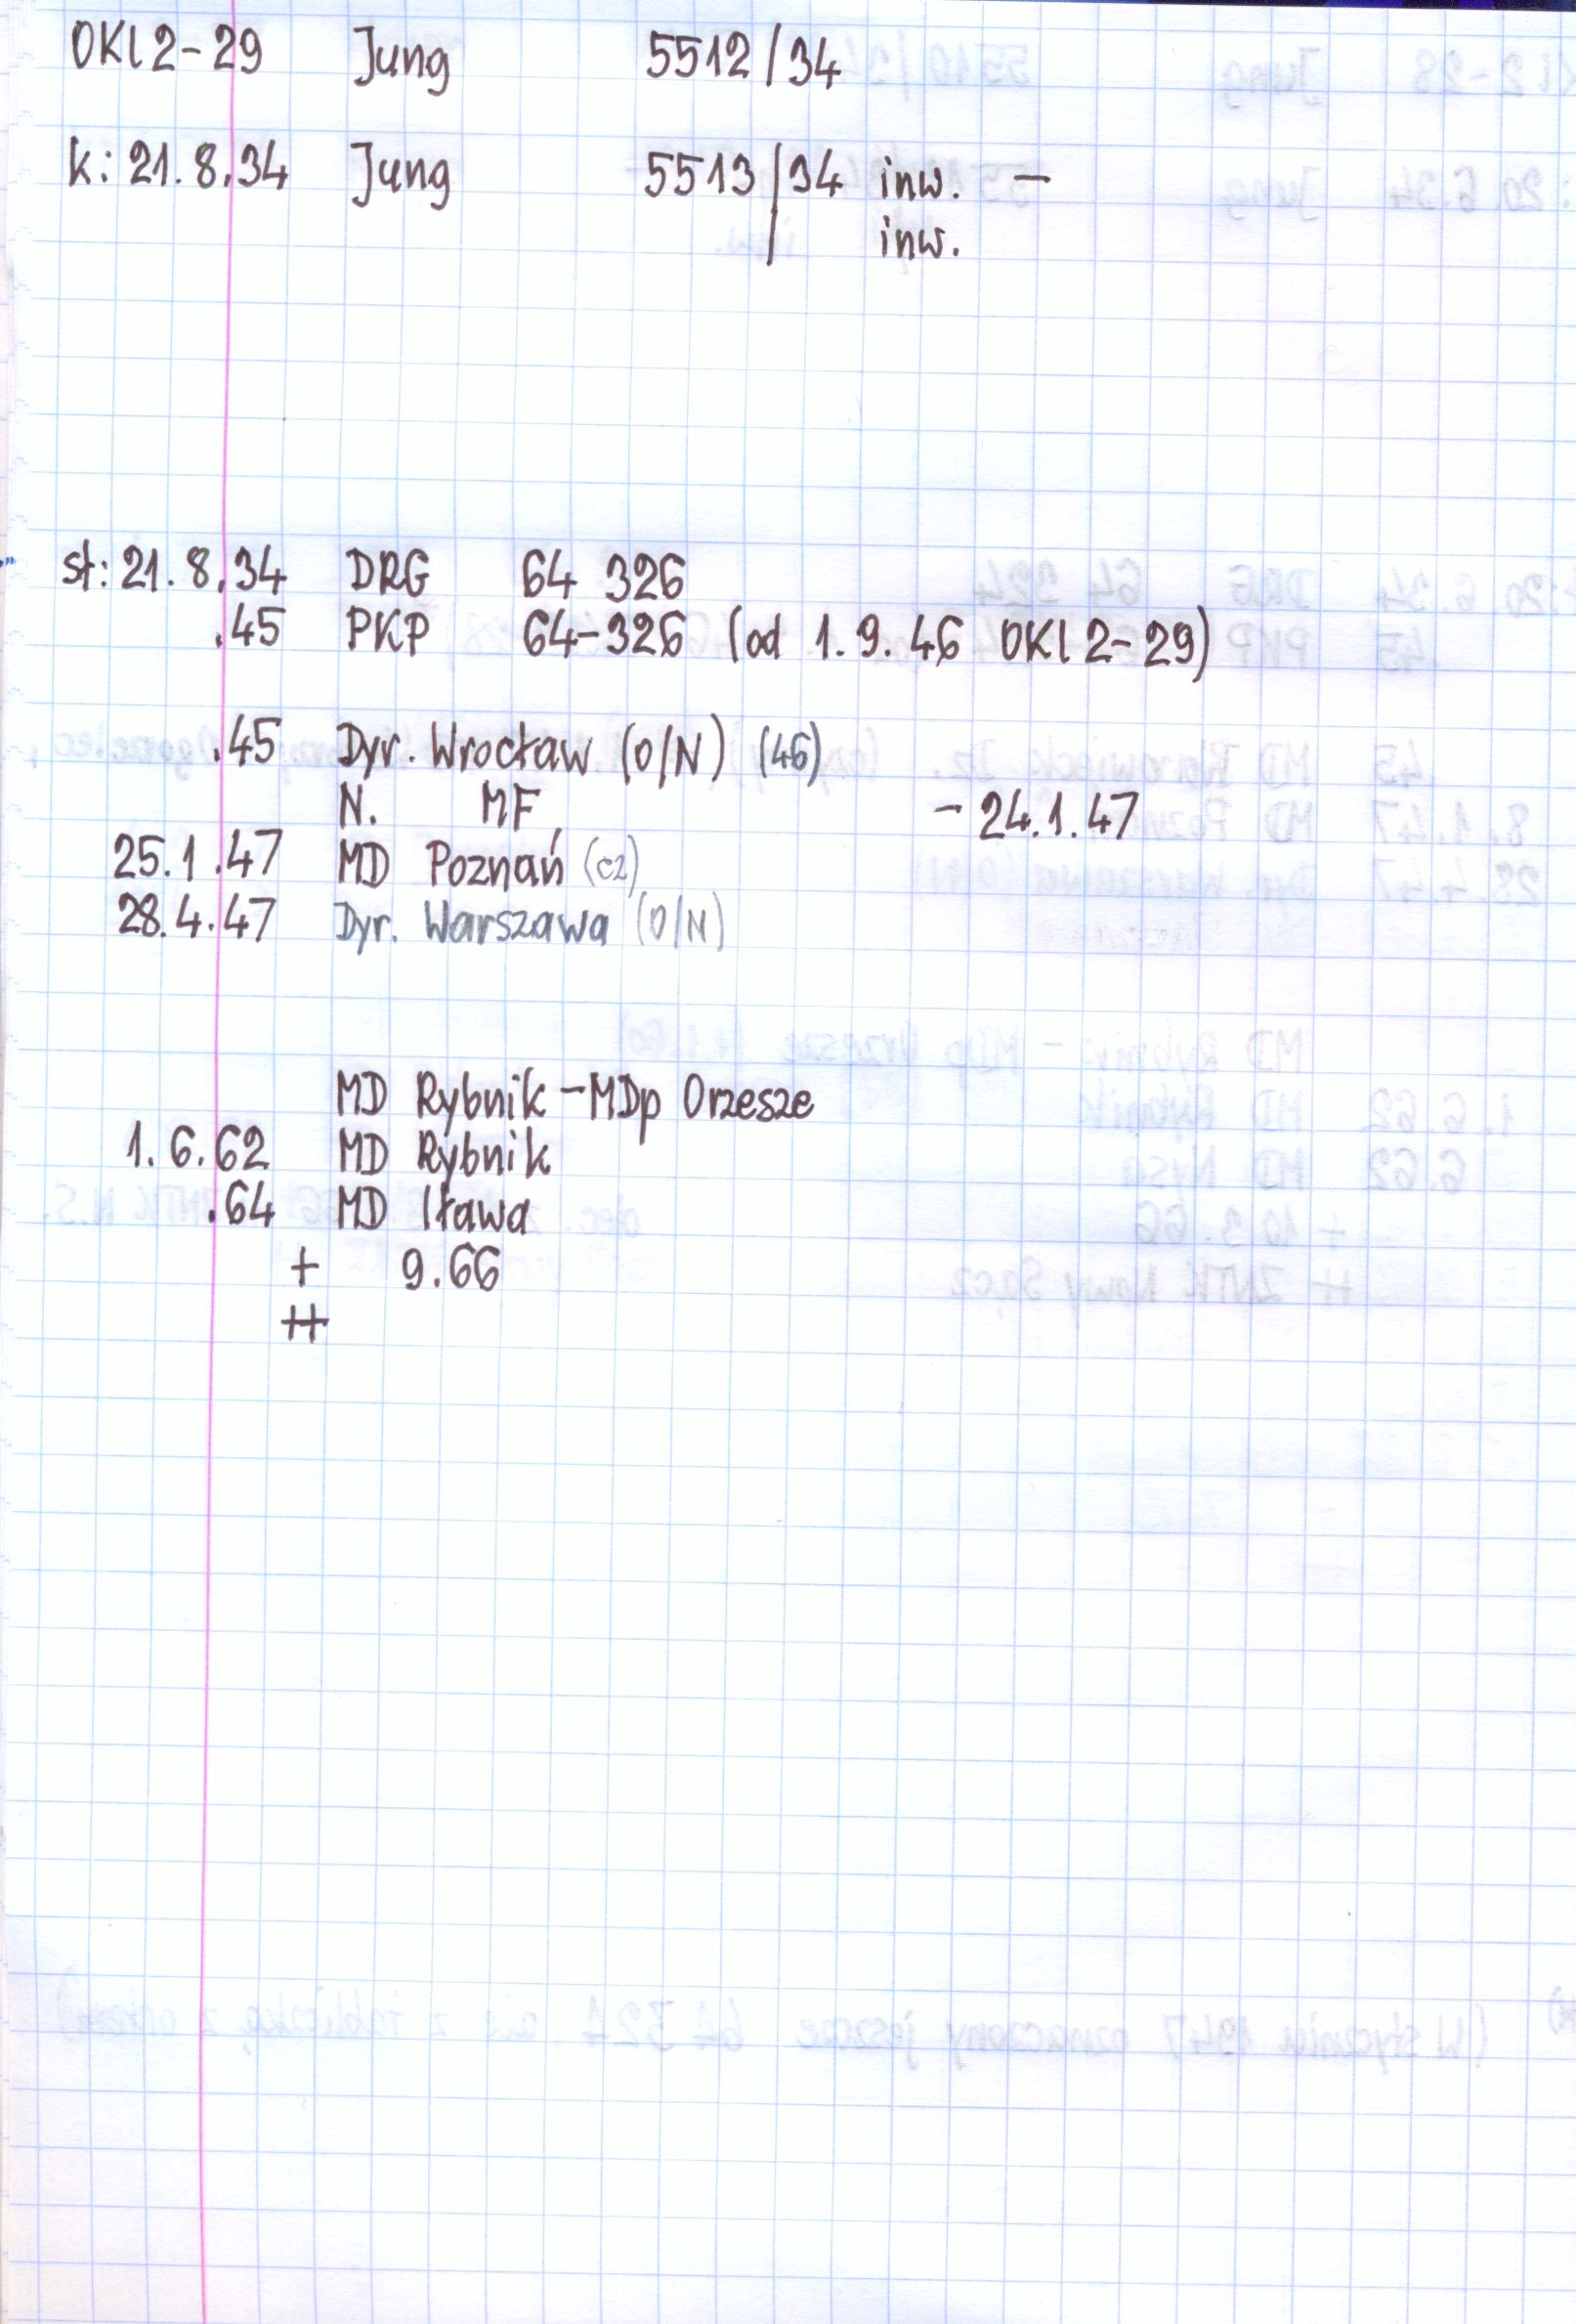 OKl2-29 Jung 5512/34
k: 21.8.34 Jung 5513/34 inw. -
/ inw.
st: 21.8.34 DRG 64 326
.45 PKP 64-326 (od 1.9.46 OKl2-29)
.45 Dyr. Wrocław (O/N) (46)
N. MF - 24.1.47
25.1.47 MD Poznań (cz)
28.4.47 Dyr. Warszawa (O/N)
MD Rybnik - MDp Orzesze
1.6.62 MD Rybnik
.64 MD Iława
+ 9.66
++